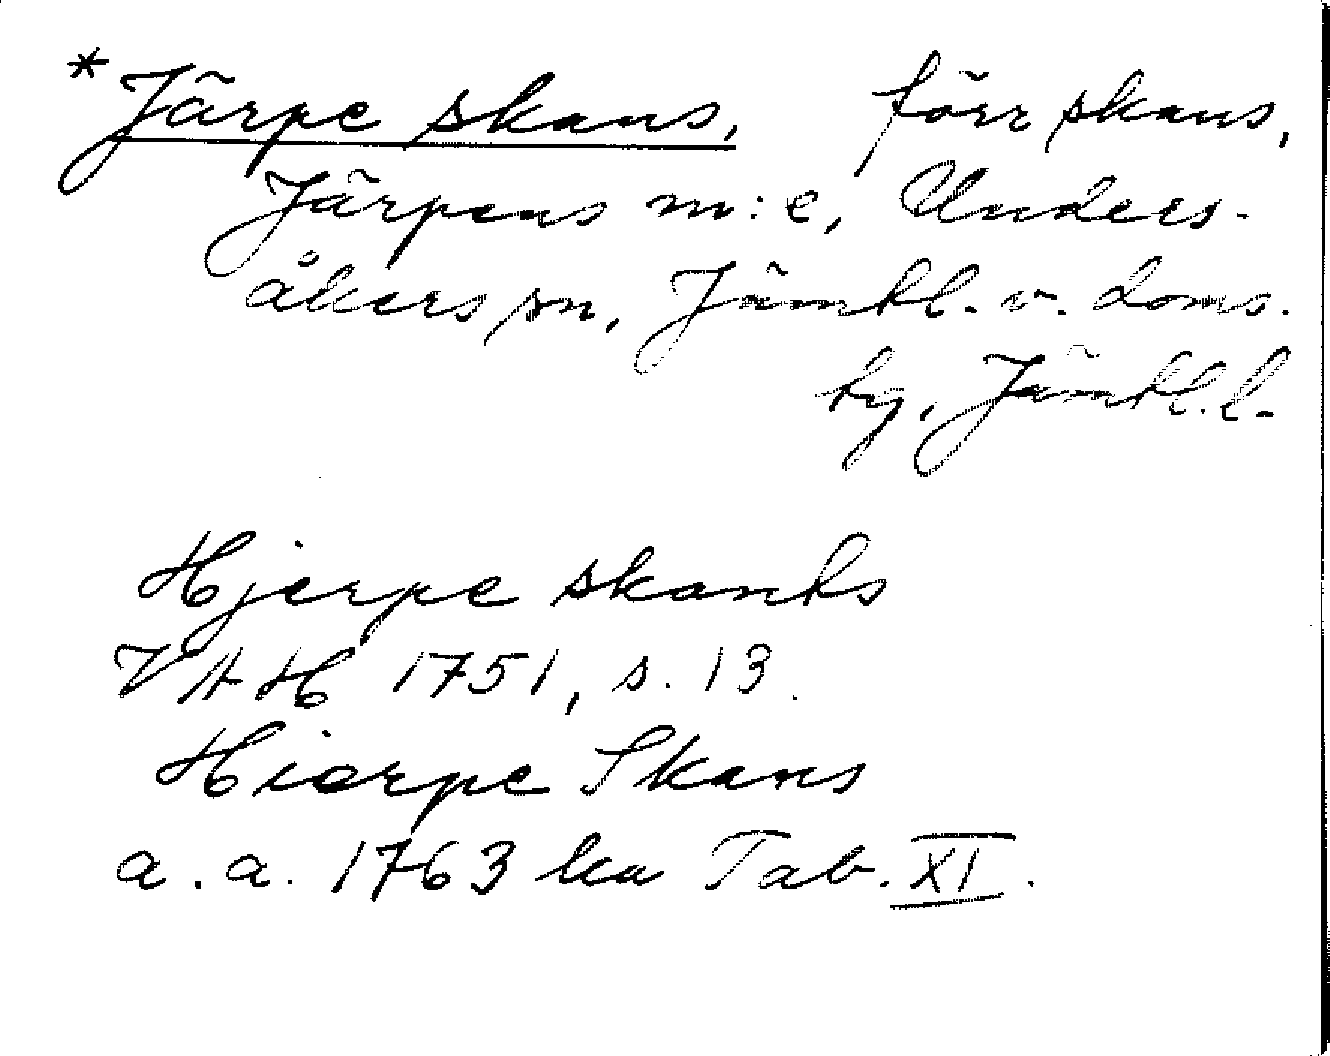 * Järpe skans, förr skans,
Järpens m:e, Unders-
åkers sn, Jämtl. v. doms.
hg, Jämtl. l.
Hjerpe skants
VAH 1751, s. 13.
Hierpe Skans
a. a. 1763 ka Tab. XI.